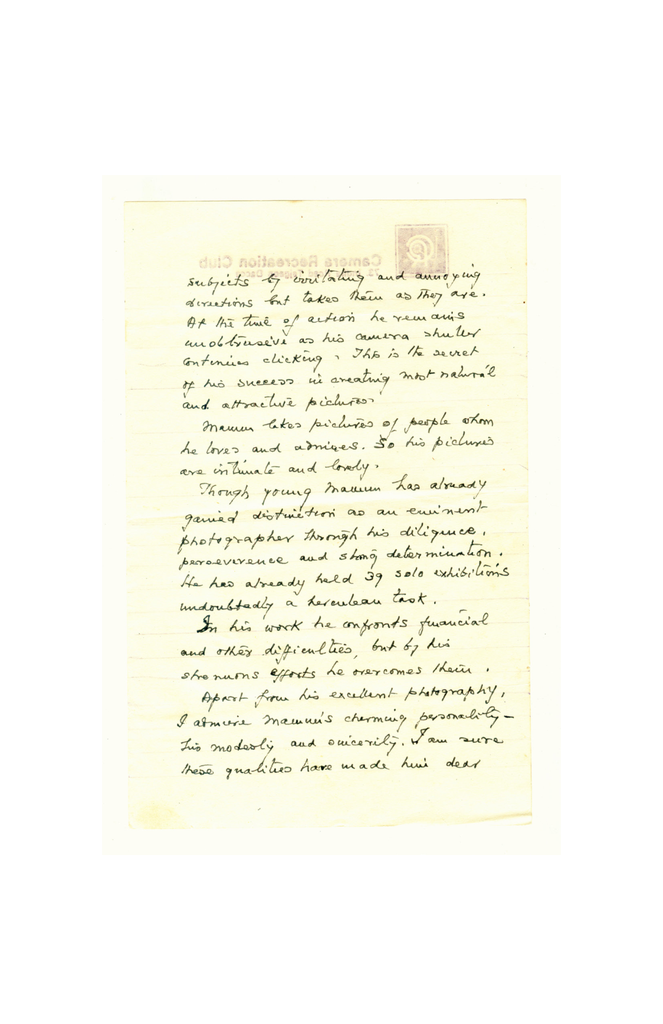 Camera Recreation Club
subjects by irritating and annoying
directions but takes them as they are.
At the time of action he remains
unobtrusive as his camera shutter
continues clicking. This is the secret
of his success in creating most natural
and attractive pictures.
Mamun takes pictures of people whom
he loves and admires. So his pictures
are intimate and lovely.
Though young Mamun has already
gained distinction as an eminent
photographer through his diligence,
perseverence and strong determination.
He has already held 39 solo exhibitions
undoubtedly a herculean task.
In his work he confronts financial
and other difficulties, but by his
strenuous efforts he overcomes them.
Apart from his excellent photography,
I admire Mamun's charming personality—
his modesty and sincerity. I am sure
these qualities have made him dear